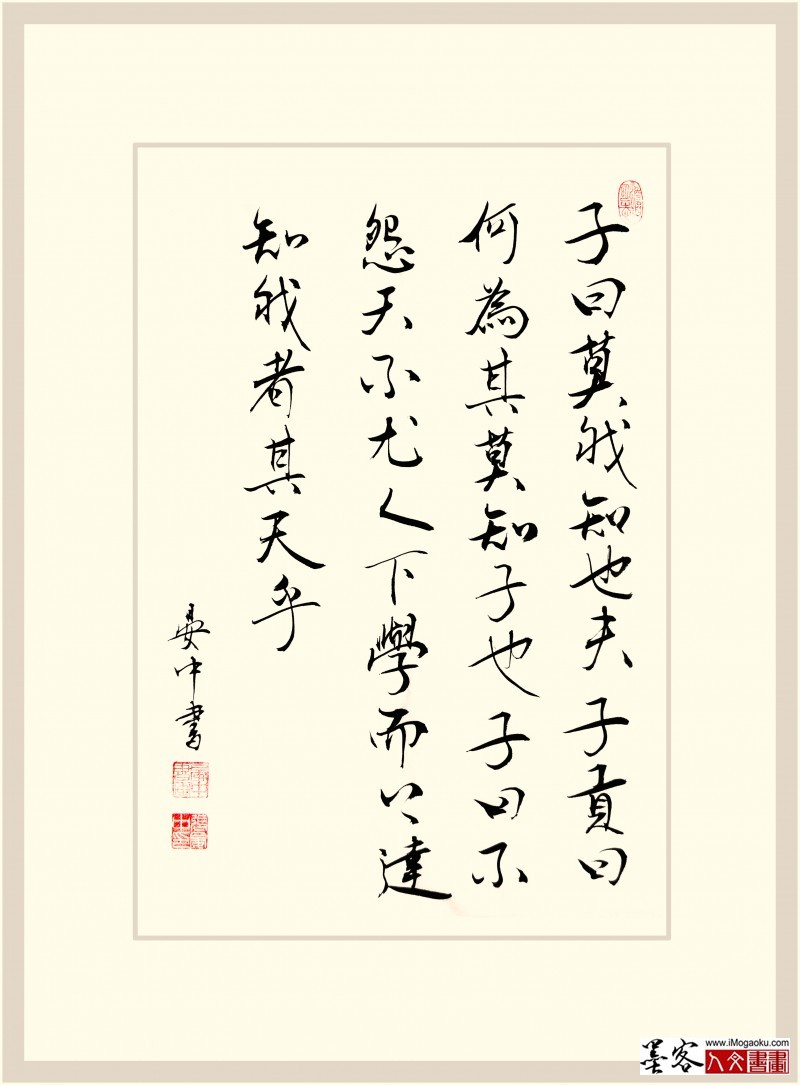 子曰莫我知也夫子貢曰
何為其莫知子也子曰不
怨天不尤人下學而上達
知我者其天乎
晏中書
墨客
www.iMogaoku.com
人文書畫